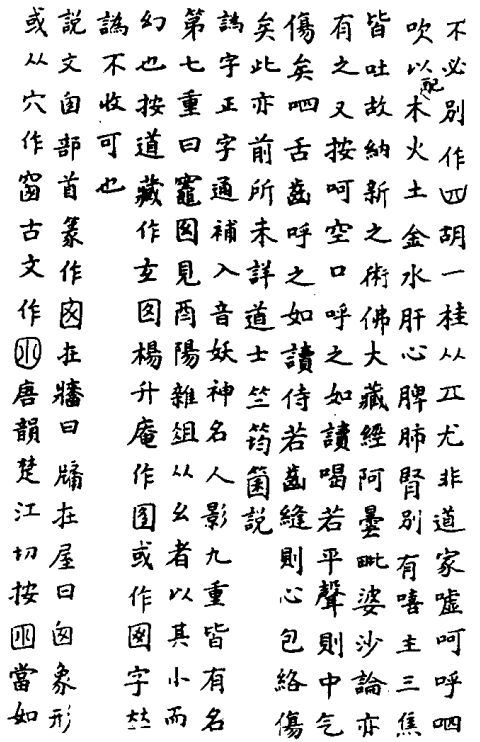 不必別作四胡一桂从丌尤非道家噓呵呼呬
吹以配木火土金水肝心脾肺腎別有嘻主三焦
皆吐故納新之術佛大藏經阿曇毗婆沙論亦
有之又按呵空口呼之如讀喝若平聲則中气
傷矣呬舌齒呼之如讀侍若齒縫則心包絡傷
矣此亦前所未詳道士竺筠箇說
譌字正字通補入音妖神名人影九重皆有名
第七重曰竈見酉陽雜俎从幺者以其小而
幻也按道藏作玄楊升庵作或作字𠀤
譌不收可也
說文囱部首篆作在牆曰牖在屋曰囱象形
或从穴作窗古文作唐韻楚江切按當如